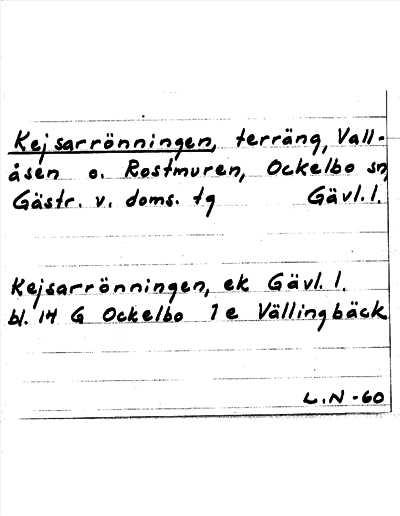 Kejsarrönningen, terräng, Vall-
åsen o. Rostmuren, Ockelbo sn,
Gästr. v. doms. tg Gävl. l.
Kejsarrönningen, ek Gävl. l.
bl. 14 G Ockelbo 1 e Vällingbäck
L.N -60